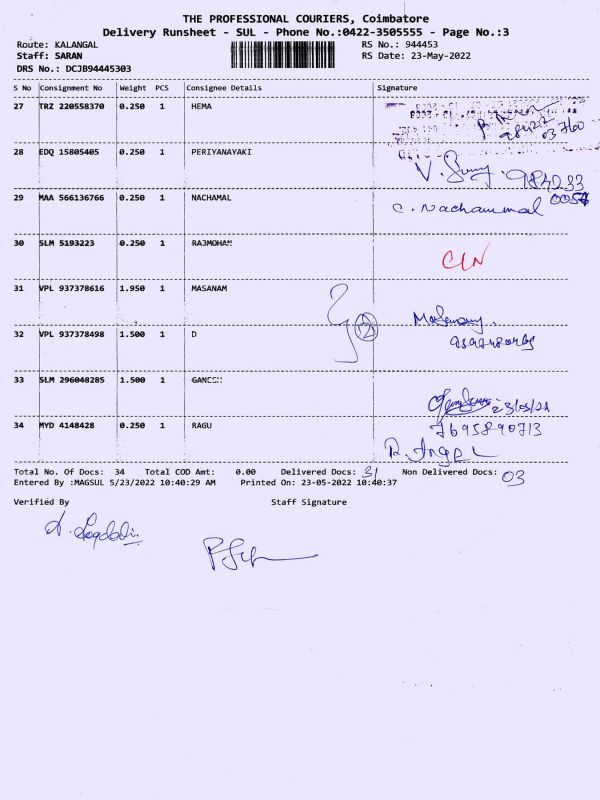 THE PROFESSIONAL COURIERS, Coimbatore
Delivery Runsheet - SUL - Phone No.:0422-3505555 - Page No.:3
Route: KALANGAL RS No.: 944453
Staff: SARAN RS Date: 23-May-2022
DRS No.: DCJB94445303
S No Consignment No Weight PCS Consignee Details Signature
27 TRZ 220558370 0.250 1 HEMA
28 EDQ 15805405 0.250 1 PERIYANAYAKI
984233
29 MAA 566136766 0.250 1 NACHAMAL
C. Nachammal
30 SLM 5193223 0.250 1 RAJMOHAN
31 VPL 937378616 1.950 1 MASANAM
32 VPL 937378498 1.500 1 D
33 SLM 296048285 1.500 1 GANESH
23/05/22
34 MYD 4148428 0.250 1 RAGU
7695890713
Total No. Of Docs: 34 Total COD Amt: 0.00 Delivered Docs: 31 Non Delivered Docs: 03
Entered By :MAGSUL 5/23/2022 10:40:29 AM Printed On: 23-05-2022 10:40:37
Verified By Staff Signature